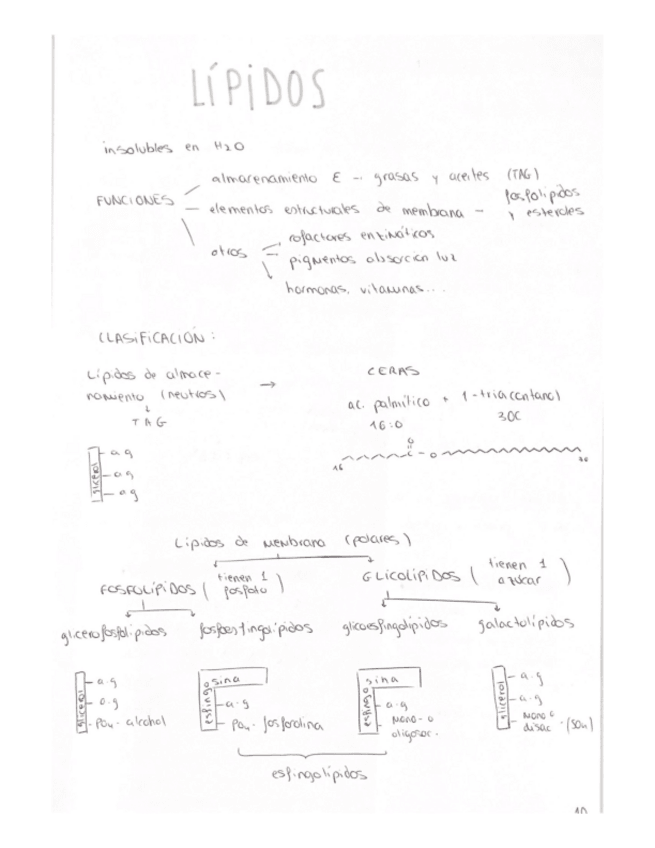 LÍPIDOS
insolubles en H2O
FUNCIONES
almacenamiento E -. grasas y aceites (TAG)
elementos estructurales de membrana - fosfolípidos y esteroles
otros
cofactores enzimáticos
pigmentos absorción luz
hormonas, vitaminas...
CLASIFICACIÓN:
Lípidos de almace-
namiento (neutros) →
↓
TAG
CERAS
ac. palmítico + 1-triacontanol
16:0 30C
glicerol
a g
a g
a g
O
16 C - O 30
Lípidos de membrana (polares)
FOSFOLÍPIDOS (tienen 1 fosfato)
GLICOLÍPIDOS (tienen 1 azúcar)
glicerofosfolípidos fosfoesfingolípidos glicoesfingolípidos galactolípidos
glicerol
a.g
a.g
PO4 - alcohol
esfingosina
a.g
PO4 - fosfocolina
esfingosina
a.g
mono- o
oligosac.
glicerol
a.g
a.g
mono o
disac - (SO4)
esfingolípidos